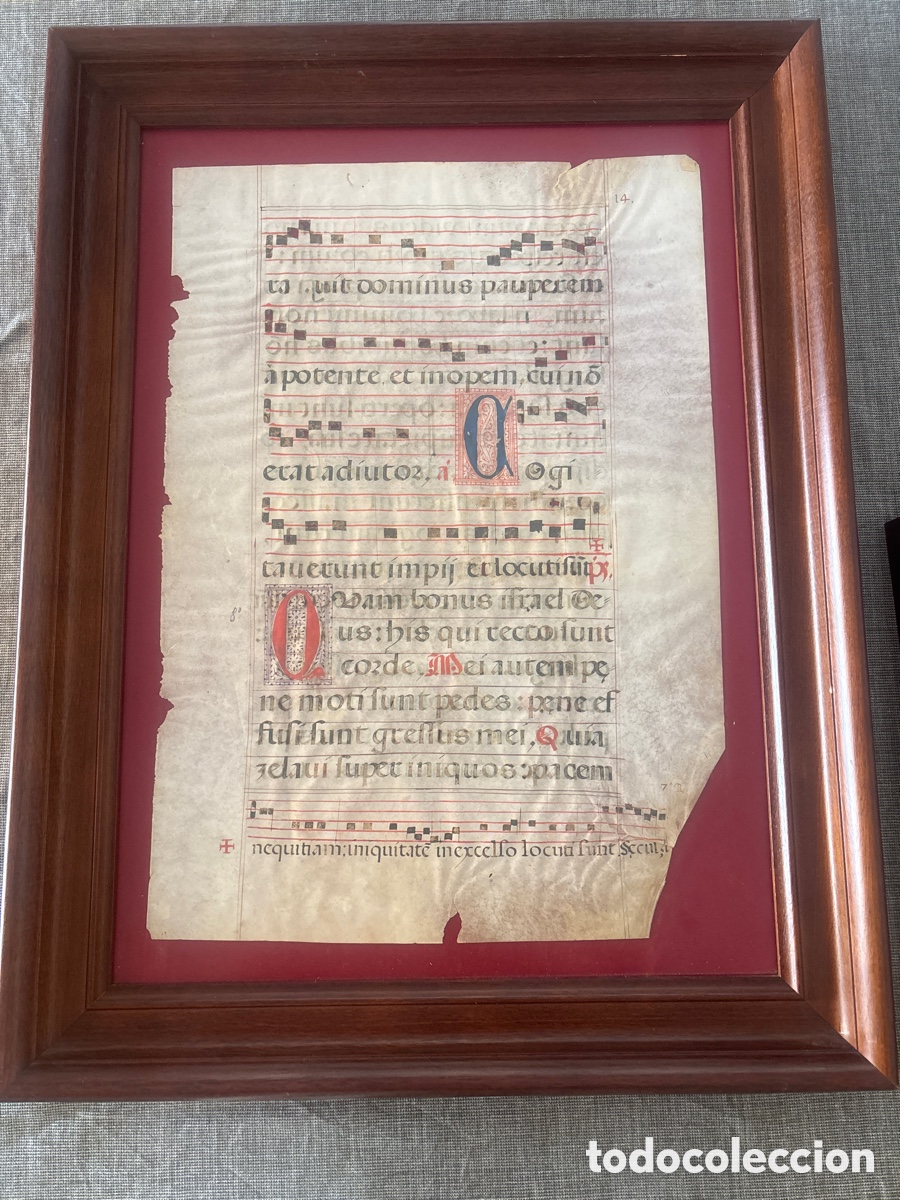 14.
ra uit dominus pauperem
à potente, et inopem, cui nō
erat adiutor. a COgi
taverunt impij et locuti sūt ps.
8º
QUam bonus israel De
us: his qui recto sunt
corde. Mei autem pe
ne moti sunt pedes: pene ef
fusi sunt gressus mei. Quia
zelavi super iniquos: pacem
nequitiam; iniquitatē in excelso locuti sunt Secula
todocoleccion